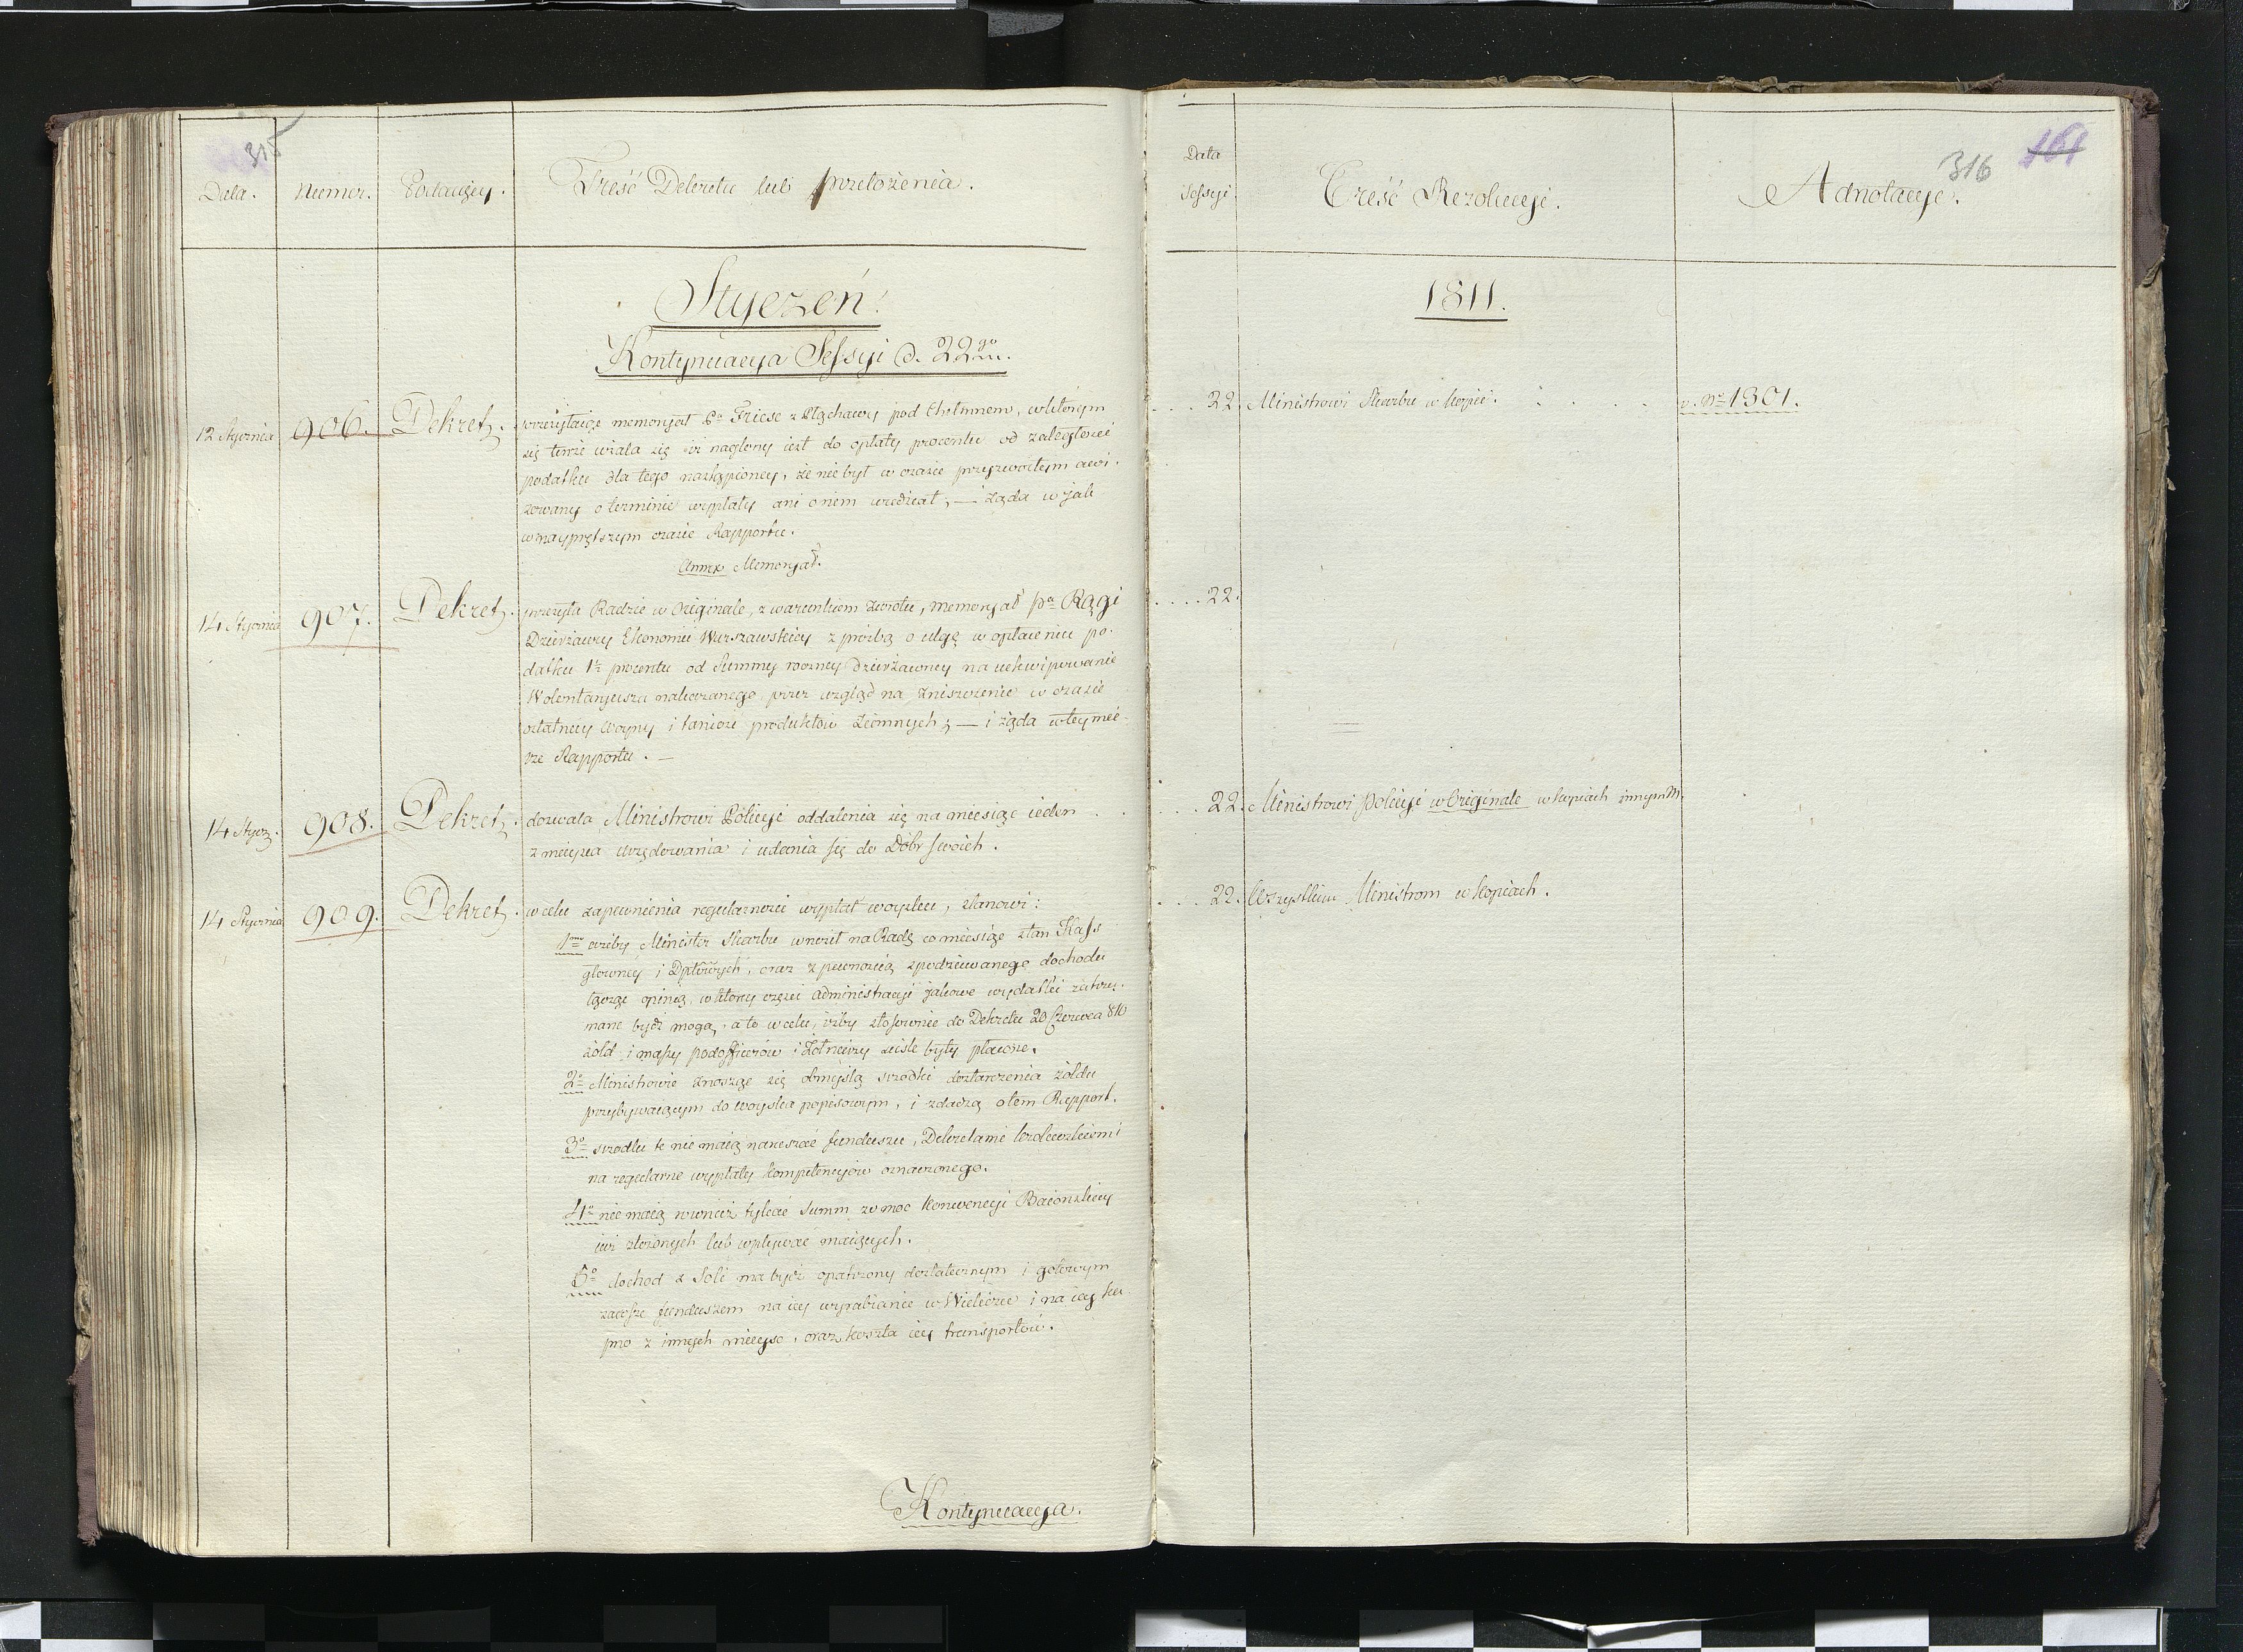 315
Data.
Numer.
Podaiący.
Treść Dekretu lub przełożenia.
Styczeń.
Kontynuacya Sessyi d. 22go
12 Stycznia 906. Dekret. przesyłaiący memoryał Pa Friese z Płąchawy pod Chełmnem, w którym
się tenże użala się iż naglony iest do opłaty procentu od zaległości
podatku dla tego nastąpioney, że nie był w czasie przyzwoitym awi-
zowany o terminie wypłaty ani o niem wiedział, — i żąda w jak
w nayprętszym czasie Rapportu.
Annex Memoryał.
14 Stycznia 907. Dekret. przesyła Radzie w Originale, z warunkiem zwrotu, memoryał Pa Rągi
Dzierżawcy Ekonomii Warszawskiey z prośbą o ulgę w opłaceniu po-
datku 1½ procentu od Summy roczney dzierżawney na uekwipowanie
Wolontaryusza nakazanego przez wzgląd na zniszczenie w czasie
ostatniey woyny i taniość produktów ziemnych; — i żąda w tey mie-
rze Rapportu. —
14 Stycz. 908. Dekret. dozwala Ministrowi Policyi oddalenia się na miesiąc ieden
z mieysca urzędowania i udania się do Dóbr swoich.
14 Stycznia 909. Dekret. w celu zapewnienia regularności wypłat woysku, stanowi:
1mo ażeby Minister Skarbu wnosił na Radę co miesiąc stan Kass
głowney i Dptowych, oraz z pewnością spodziewanego dochodu
łącząc opinią, w którey części administracyi jakowe wydatki zatrzy-
mane bydź mogą, a to w celu, iżby stosownie do Dekretu 20 Czerwca 810
żołd i massy podofficerów i Żołnierzy ściśle były płacone.
2o Ministrowie znosząc się obmyślą srzodki dostarczenia żołdu
przybywaiącym do woyska popisowym, i zdadzą o tem Rapport.
3o srzodki te nie maią naruszać funduszu, Dekretami Krolewskiemi
na regularne wypłaty kompetencyów oznaczonego.
4o nie maią również tykać Summ w moc Konwencyi Baiońskiey
iuż złożonych lub wpływać maiących.
5o dochod z Soli ma bydź opatrzony dostatecznym i gotowym
zawsze funduszem na iey wyrabianie w Wieliczce i na iey ku-
pno z innych mieysc, oraz koszta iey transportów.
Kontynuacya.
316
161
Data
Sessyi.
Treść Rezolucyi.
Adnotacye.
1811.
22. Ministrowi Skarbu w kopii. v. Nr 1301.
22.
22. Ministrowi Policyi w Originale w kopiach innym M.
22. Wszystkim Ministrom w kopiach.